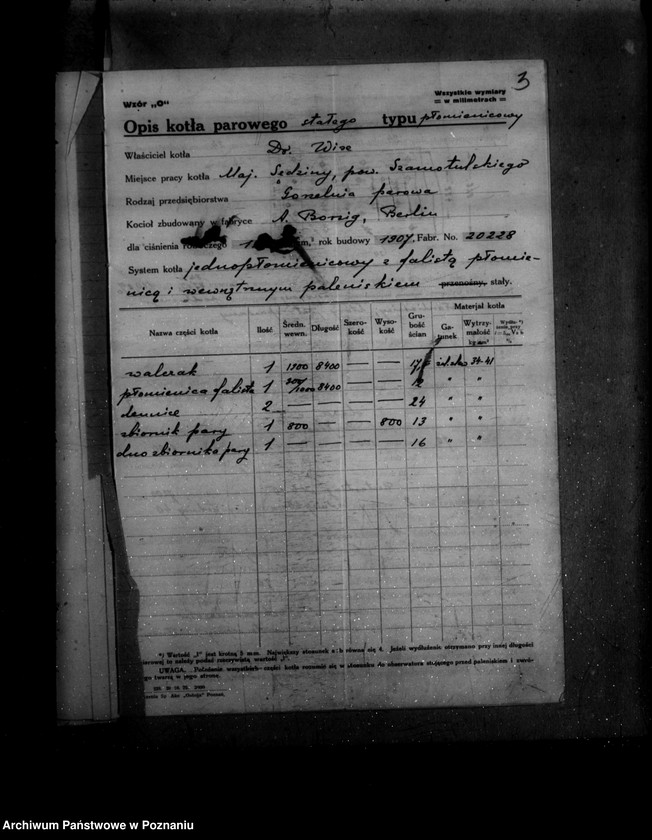 3
Wzór „O“
Wszystkie wymiary
= w milimetrach =
Opis kotła parowego stałego typu płomienicowy
Właściciel kotła Dr. Wize
Miejsce pracy kotła Maj. Sędziny, pow. Szamotulskiego
Rodzaj przedsiębiorstwa Gorzelnia parowa
Kocioł zbudowany w fabryce A. Borsig, Berlin
dla ciśnienia roboczego rok budowy 1907, Fabr. No. 20228
System kotła jednopłomienicowy z falistą płomie-
nicą i wewnętrznym paleniskiem przenośny, stały.
Nazwa części kotła Ilość Średn. wewn. Długość Szero-kość Wyso-kość Gru-bość ścian Materjał kotła Ga-tunek Wytrzy-małość kg/mm²
walczak 1 1900 8400 — — 17 żelazo 34-41
płomienica falista 1 8400 — — 12 " "
dennice 2 — — — — 24 " "
zbiornik pary 1 800 — — 800 13 " "
dno zbiornika pary 1 — — — — 16 " "
*) Wartość „l“ jest krotną 5 m/m. Największy stosunek a : b równa się 4. Jeżeli wydłużenie otrzymano przy innej długości
to należy podać rzeczywistą wartość „l“.
UWAGA. Położenie wszystkich części kotła rozumie się w stosunku do obserwatora stojącego przed paleniskiem i zwró-
go twarzą w jego stronę.
Poznań.
Archiwum Państwowe w Poznaniu